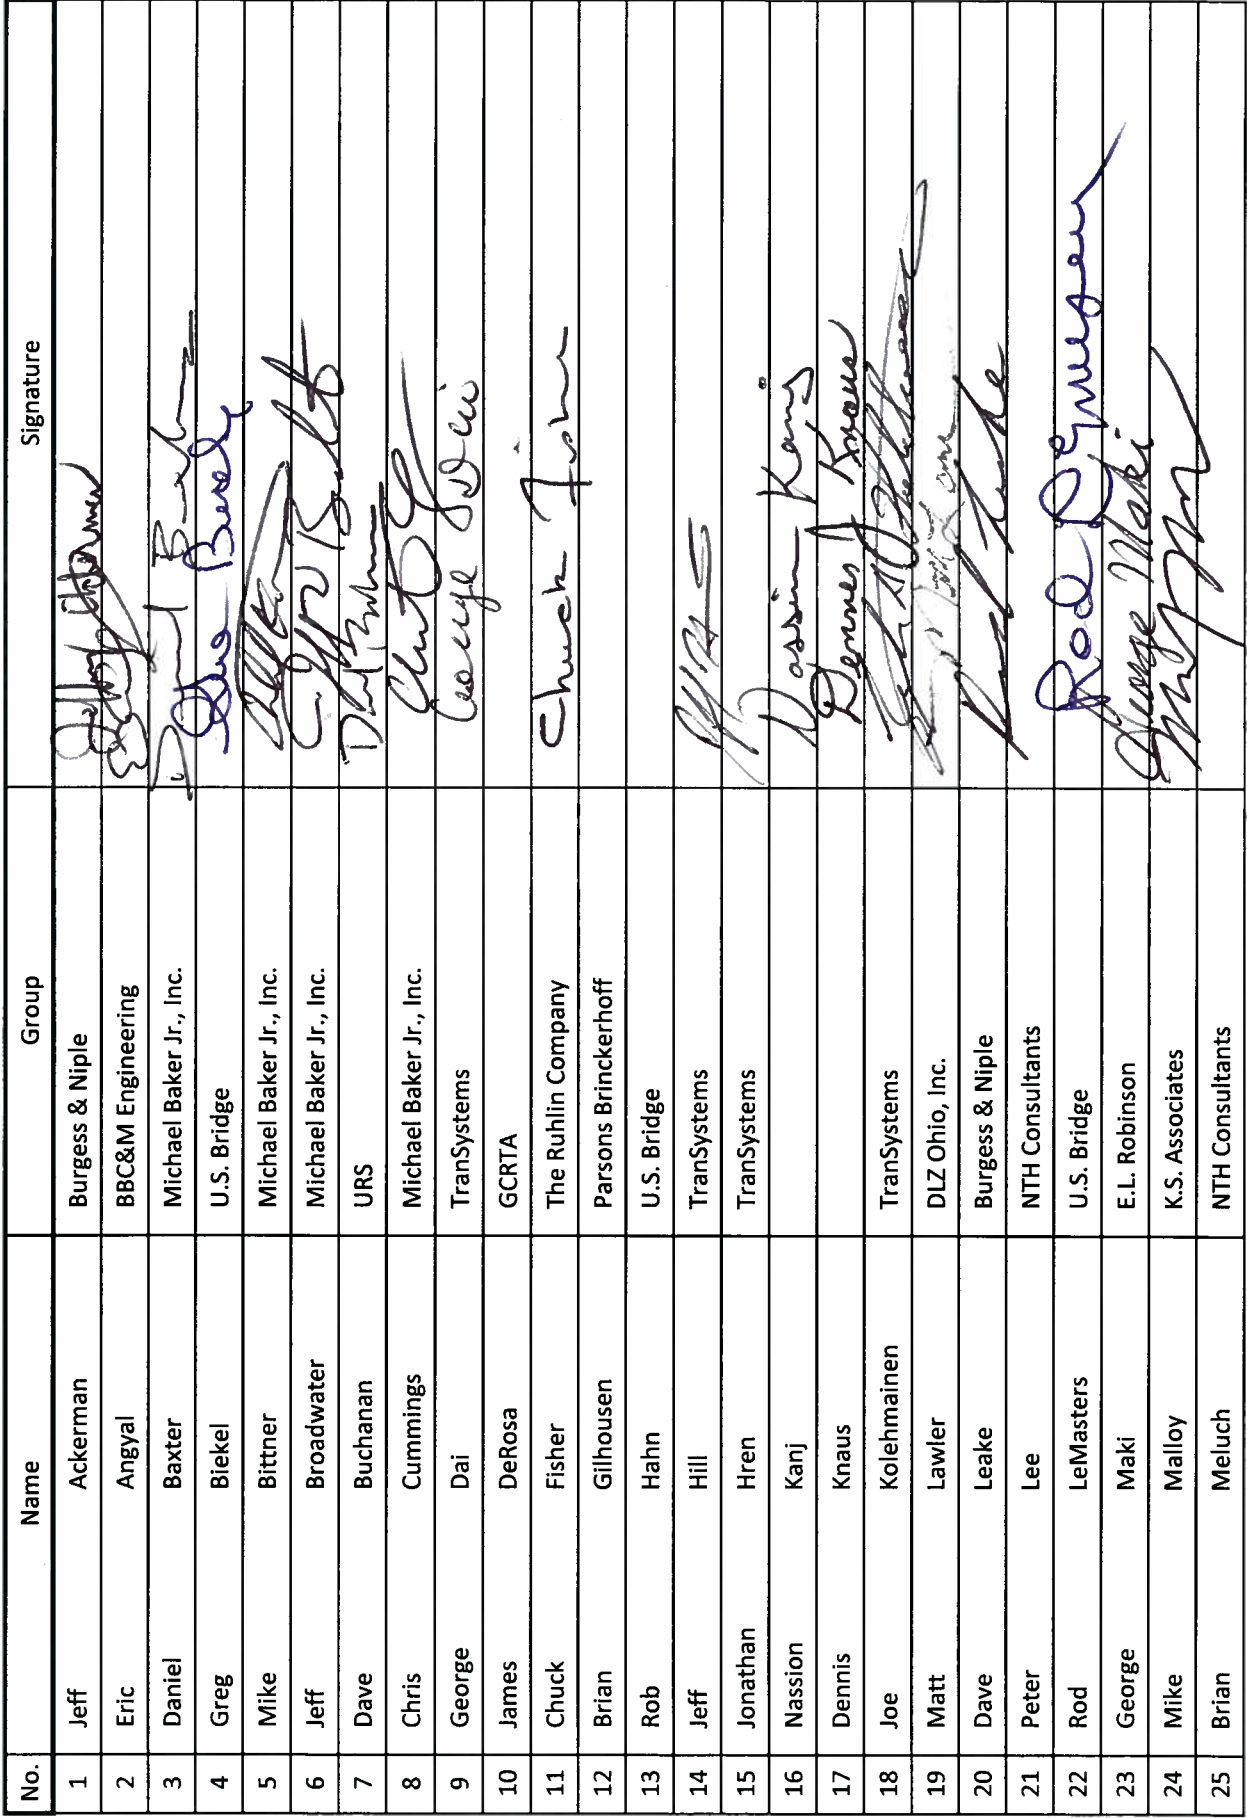 No. Name Group Signature
1 Jeff Ackerman Burgess & Niple
2 Eric Angyal BBC&M Engineering
3 Daniel Baxter Michael Baker Jr., Inc.
4 Greg Biekel U.S. Bridge
5 Mike Bittner Michael Baker Jr., Inc.
6 Jeff Broadwater Michael Baker Jr., Inc.
7 Dave Buchanan URS
8 Chris Cummings Michael Baker Jr., Inc.
9 George Dai TranSystems George Dai
10 James DeRosa GCRTA
11 Chuck Fisher The Ruhlin Company Chuck Fisher
12 Brian Gilhousen Parsons Brinckerhoff
13 Rob Hahn U.S. Bridge
14 Jeff Hill TranSystems
15 Jonathan Hren TranSystems
16 Nassion Kanj Nassim Kanj
17 Dennis Knaus Dennis J Knaus
18 Joe Kolehmainen TranSystems
19 Matt Lawler DLZ Ohio, Inc.
20 Dave Leake Burgess & Niple
21 Peter Lee NTH Consultants
22 Rod LeMasters U.S. Bridge Rod
23 George Maki E.L. Robinson George Maki
24 Mike Malloy K.S. Associates
25 Brian Meluch NTH Consultants